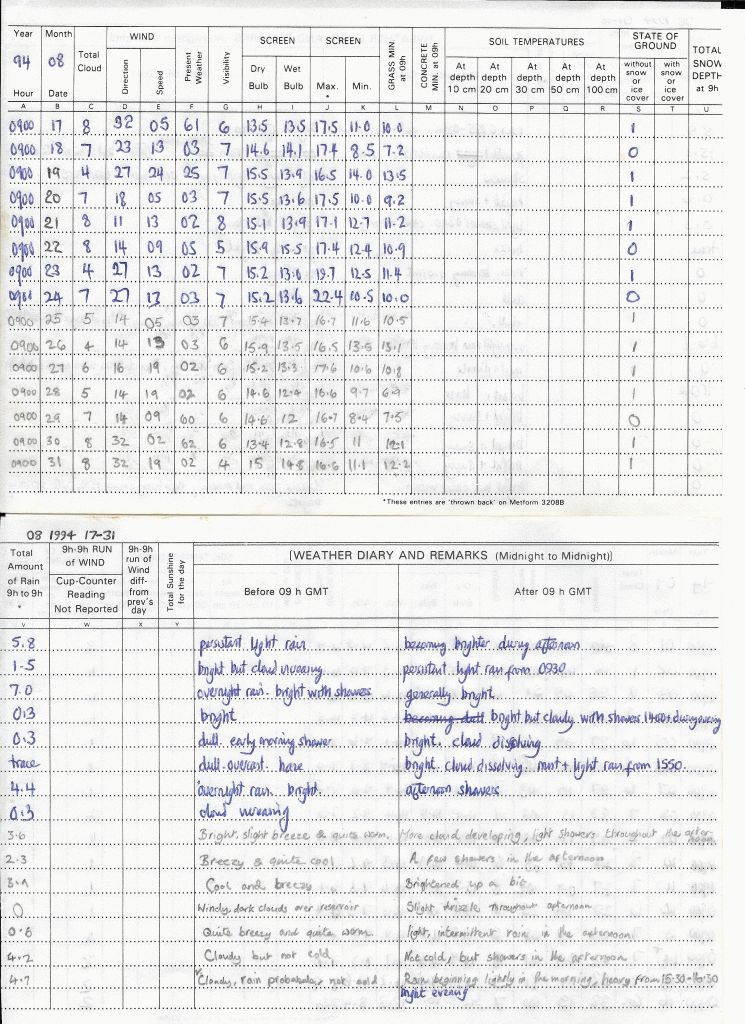 Year Month Total Cloud WIND Present Weather Visibility SCREEN SCREEN GRASS MIN. at 09h CONCRETE MIN. at 09h SOIL TEMPERATURES STATE OF GROUND TOTAL SNOW DEPTH at 9h
94 08 Direction Speed Dry Bulb Wet Bulb Max. * Min. At depth 10 cm At depth 20 cm At depth 30 cm At depth 50 cm At depth 100 cm without snow or ice cover with snow or ice cover
Hour Date
A B C D E F G H I J K L M N O P Q R S T U
0900 17 8 32 05 61 6 13.5 13.5 17.5 11.0 10.0 1
0900 18 7 23 13 03 7 14.6 14.1 17.4 8.5 7.2 0
0900 19 4 27 24 25 7 15.5 13.9 16.5 14.0 13.5 1
0900 20 7 18 05 03 7 15.5 13.6 17.5 10.0 9.2 1
0900 21 8 11 13 02 8 15.1 13.9 17.1 12.7 11.2 1
0900 22 8 14 09 05 5 15.9 15.5 17.4 12.4 10.9 0
0900 23 4 27 13 02 7 15.2 13.0 19.7 12.5 11.4 1
0900 24 7 27 13 03 7 15.2 13.6 22.4 10.5 10.0 0
0900 25 5 14 05 03 7 15.4 13.7 16.7 11.6 10.5 1
0900 26 4 14 13 03 6 15.9 13.5 16.5 13.5 13.1 1
0900 27 6 16 19 02 6 15.2 13.3 17.6 10.6 10.8 1
0900 28 5 14 19 02 6 14.6 12.4 16.6 9.7 6.9 1
0900 29 7 14 09 60 6 14.6 12 16.7 8.4 7.5 0
0900 30 8 32 02 62 6 13.4 12.8 16.5 11 12.1 1
0900 31 8 32 19 02 4 15 14.8 16.6 11.1 12.2 1
*These entries are 'thrown back' on Metform 3208B
08 1994 17-31
Total Amount of Rain 9h to 9h * 9h-9h RUN of WIND 9h-9h run of Wind diff- from prev's day Total Sunshine for the day (WEATHER DIARY AND REMARKS (Midnight to Midnight))
Cup-Counter Reading Not Reported Before 09 h GMT After 09 h GMT
V W X Y
5.8 persistant light rain becoming brighter during afternoon
1.5 bright but cloud increasing persistent light rain from 0930
7.0 overnight rain. bright with showers generally bright
0.3 bright becoming dull bright but cloudy with showers 1400+ during evening
0.3 dull. early morning shower bright. cloud dissolving
trace dull. overcast. haze bright. cloud dissolving. mist + light rain from 1550.
4.4 overnight rain. bright. afternoon showers
0.3 cloud increasing
3.6 Bright, slight breeze & quite warm. More cloud developing, light showers throughout the after-
noon.
2.3 Breezy & quite cool A few showers in the afternoon
Cool and breezy Brightened up a bit
0 Windy, dark clouds over reservoir Slight drizzle throughout afternoon
0.6 Quite breezy and quite warm. light, intermittent rain in the afternoon
4.2 Cloudy but not cold Not cold, but showers in the afternoon
4.7 Cloudy, rain probable, not cold Rain beginning lightly in the morning, heavy from 15.30-16.30
bright evening